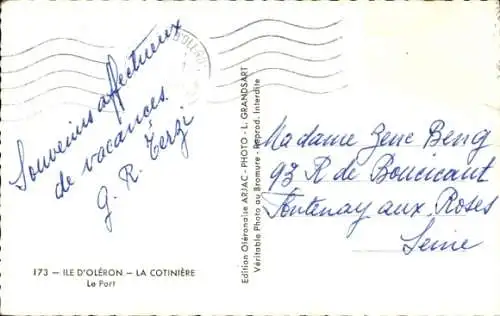 Souvenirs affectueux
de vacances.
G. R. Terzi
173 — ILE D'OLÉRON — LA COTINIÈRE
Le Port
Edition Oléronaise ARJAC - PHOTO - L. GRANDSART
Véritable Photo au Bromure - Reprod. Interdite
Madame Zenc Beng
93 R de Boucicaut
Fontenay aux Roses
Seine